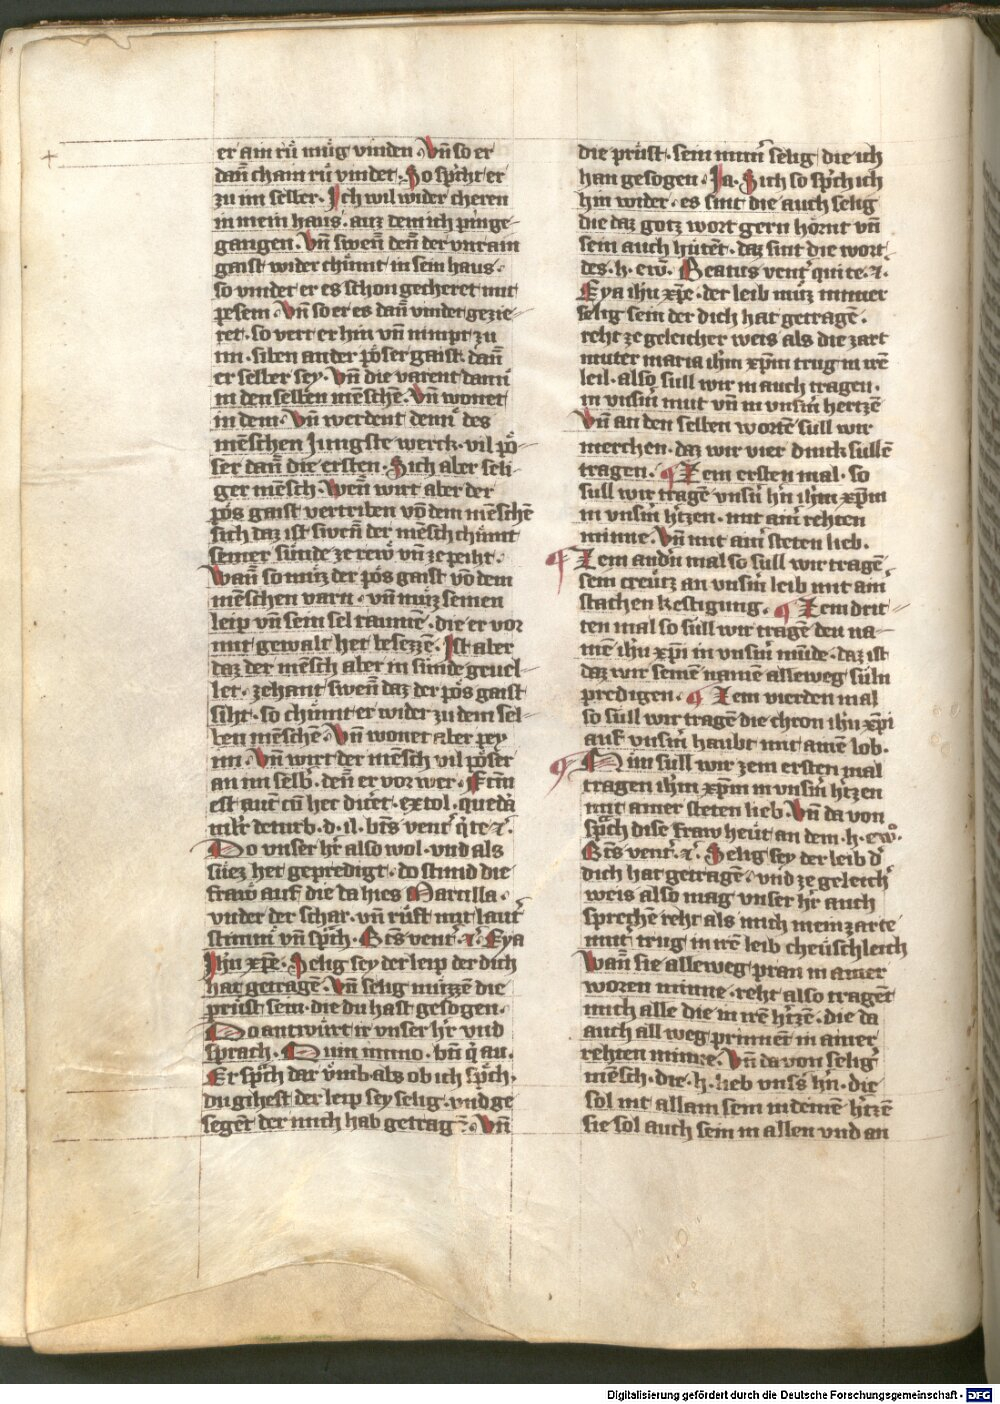 er ain rů můg vinden. Vn̄ so er
dan̄ chain rů vindet. So spͥcht er
zu im selber. Ich wil wider cheren
in mein haus. auz dem ich pin ge-
gangen. Vn̄ swen̄ den̄ der vnrain
gaist wider chůmt in sein haus.
so vindet er es schon gecheret mit
pesem. Vn̄ so er es dan̄ vindet gezie-
ret. so vert er hin vn̄ nimpt zu
im. siben ander pöser gaist. dan̄
er selber sey. Vn̄ die varent damit
in den selben mēschē. Vn̄ wonet
in dem. Vn̄ werdent denn̄ des
mēschen Jungste werck. vil pö-
ser dan̄ die ersten. Sich aber seli-
ger mēsch. Wen̄ wirt aber der
pös gaist vertriben vō dem mēschē
sich daz ist swen̄ der mēsch chůmt
seiner sünde ze rew vn̄ ze peiht.
Wan̄ so můz der pös gaist vō dem
mēschen varn. vn̄ můz seinen
leip vn̄ sein sel raumē. die er vor
mit gewalt het besezzē. Ist aber
daz der mēsch aber in sünde geuel-
let. zehant swen̄ daz der pös gaist
siht. so chůmt er wider zu dem sel-
ben mēschē. Vn̄ wonet aber pey
im. Vn̄ wirt der mēsch vil pöser
an im selbˀ. den̄ er vor wer. Fcm̄
est aut̄ cū hec dic̄et. extol. quedā
mlˀr de turb. d. il. bt̄s ventˀ q̇ te ⁊c̄.
Do vnser hˀr also wol. vnd als
süez het gepredigt. do stund die
fraw auf die da hies Marcilla.
vnder der schar. vn̄ rüft mit lautˀ
stimm̄ vn̄ spͣch. Bt̄s ventˀ. ⁊c̄. Eya
Jhū xp̄e. Selig sey der leip der dich
hat getragē. Vn̄ selig müzzē die
prüst sein. die du hast gesogen.
Do antwürt ir vnser hˀr vnd
sprach. Quin immo. bn̄ q̇ au.
Er spͣch dar vmb. als ob ich spͣch.
du gihest der leip sey selig. vnd ge
segēt der mich hab getragē. Vn̄
die prüst. sein nim̄ selig die ich
han gesogen. Ja. Sich so spͥch ich
hin wider. es sint die auch selig
die daz gotz wort gern hörnt vn̄
sein auch hütēt. daz sint die wort
des. h. ew̄. Beatus ventˀ qui te. ⁊c̄.
Eya ihū xp̄e. der leib můz immer
selig sein der dich hat getragē.
reht ze geleicher weis als die zart
muter maria ihm̄ xp̄m trug in irē
leil. also sull wir in auch tragen.
in vnsm̄ mut vn̄ in vnsm̄ hertzē
Vn̄ an den selben wortē sull wir
merchen. daz wir vier dinck sullē
tragen. ¶ Zem ersten mal. so
sull wir tragē vnsn̄ hˀn ihm̄ xp̄m
in vnsm̄ hˀtzen. mit ainˀ rehten
minne. Vn̄ mit ainˀ steten lieb.
¶ Zem andn̄ mal so sull wir tragē
sein creütz an vnsm̄ leib mit ainˀ
stachen kestigung. ¶ Zem drit-
ten mal so sull wir tragē den na-
mē ihū xp̄i in vnsm̄ mūde. daz ist
daz wir seinē namē alleweg süln
predigen. ¶ Zem vierden mal
so sull wir tragē die chron ihū xp̄i
auf vnsm̄ haubt mit ainē lob.
¶ Nim sull wir zem ersten mal
tragen ihm̄ xp̄m in vnsm̄ hˀtzen
mit ainer steten lieb. Vn̄ da von
spͣch dise fraw heüt an dem. h. ewͦ.
Bt̄s ventˀ. ⁊c̄. Selig sey der leib dˀ
dich hat getragē. vnd ze geleichˀ
weis also mag vnser hˀr auch
sprechē reht als mich mein zarte
mutˀ trug in irē leib cheüschleich
Wan̄ sie alleweg pran in ainer
woren minne. reht also tragēt
mich alle die in irē hˀtzē. die da
auch all weg prinnēt in ainer
rehten minne. Vn̄ da von seligˀ
mēsch. die. h. lieb vnsˀs hˀn. die
sol nit allain sein in deinē hˀtzē
sie sol auch sein in allen vnd an
Digitalisierung gefördert durch die Deutsche Forschungsgemeinschaft - DFG